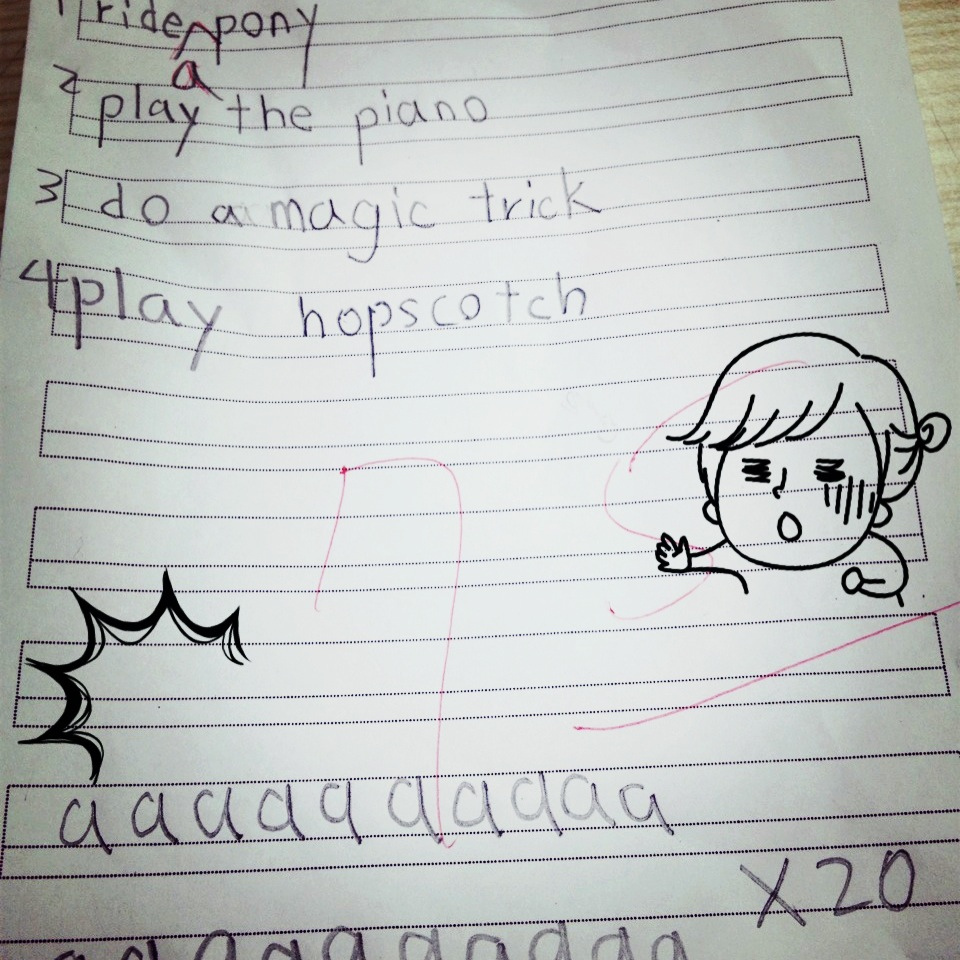 1 ride pony
a
2 play the piano
3 do a magic trick
4 play hopscotch
75
a a a a a a a a a a
x20
a a a a a a a a a a